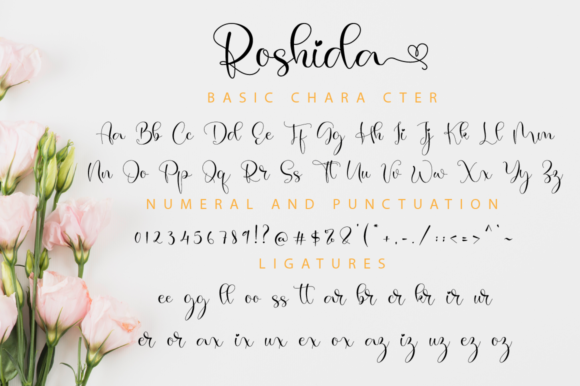 Roshida
BASIC CHARA CTER
Aa Bb Cc Dd Ee Ff Gg Hh Ii Jj Kk Ll Mm
Nn Oo Pp Qq Rr Ss Tt Uu Vv Ww Xx Yy Zz
NUMERAL AND PUNCTUATION
0123456789!?@#$%&'("+,-./:;<=>^`~
LIGATURES
ee gg ll oo ss tt ar br cr kr ir ur
er or ax ix ux ex ox az iz uz ez oz